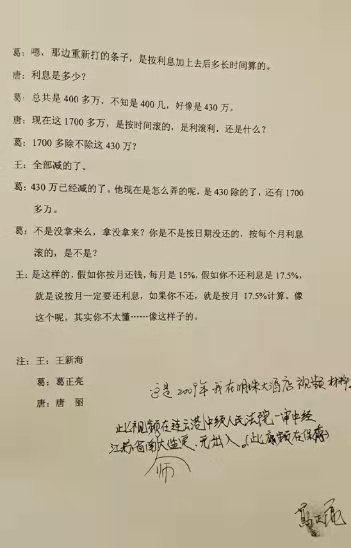 葛：嗯，那边重新打的条子，是按利息加上去后多长时间算的。
唐：利息是多少？
葛：总共是 400 多万，不知是 400 几，好像是 430 万。
唐：现在这 1700 多万，是按时间滚的，是利滚利，还是什么？
葛：1700 多除不除这 430 万？
王：全部减的了。
葛：430 万已经减的了，他现在是怎么弄的呢，是 430 除的了，还有 1700
多万。
葛：不是没拿来么，拿没拿来？你是不是按日期没还的，按每个月利息
滚的，是不是？
王：是这样的，假如你按月还钱，每月是 15%，假如你不还利息是 17.5%，
就是说按月一定要还利息，如果你不还，就是按月 17.5%计算，像
这个呢，其实你不太懂……像这样子的。
注：王：王新海
葛：葛正亮
唐：唐 丽
这是2009年我在明珠大酒店视频材料
此视频在连云港中级人民法院一审中经
江苏省南大监定.无出入.(此音频在保存)
师
葛正亮